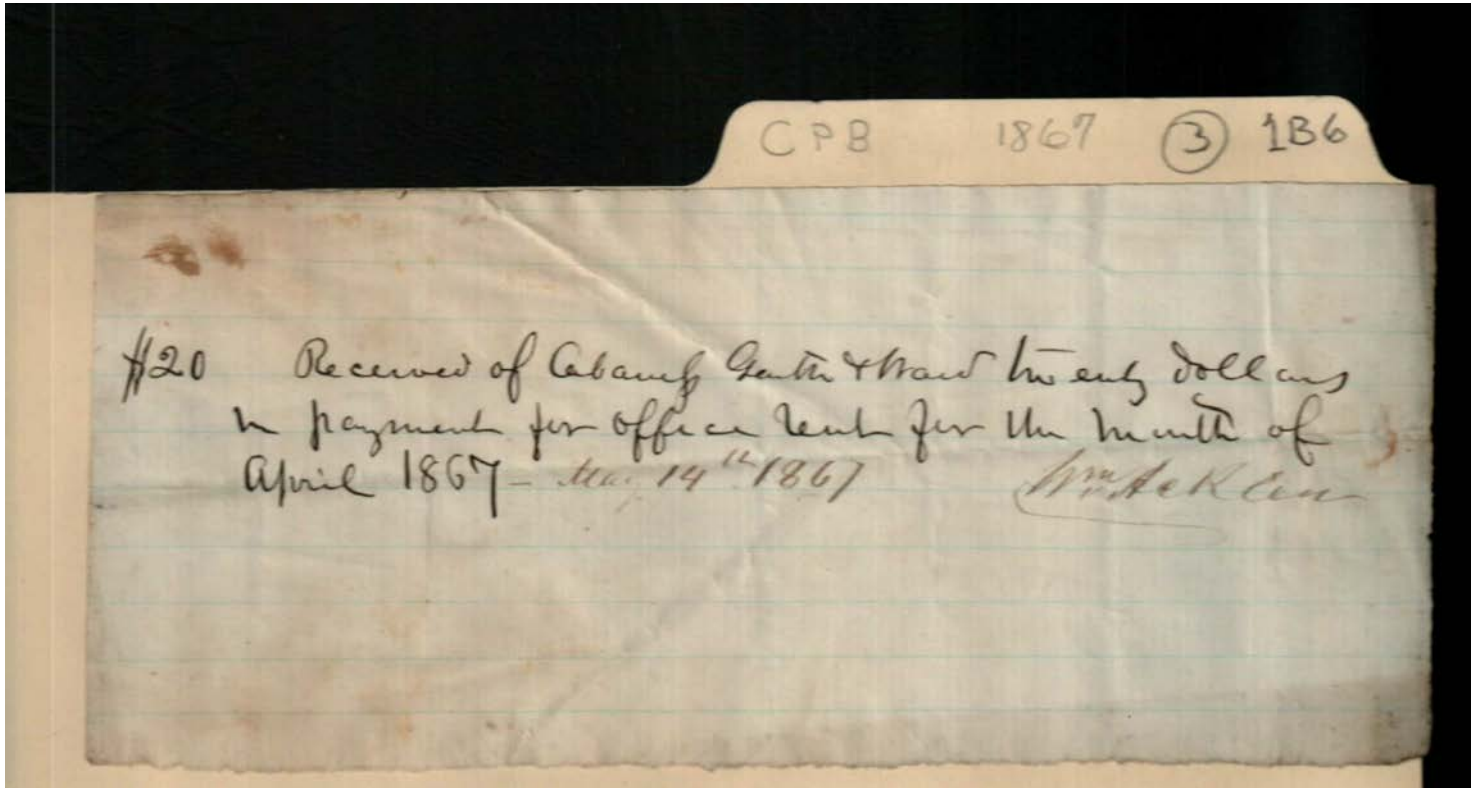 CPB 1867 3 1B6
$20 Received of Cabaness & Ward twenty dollars
in payment for office rent for the month of
April 1867 - May 14th 1867 Wm Acklen